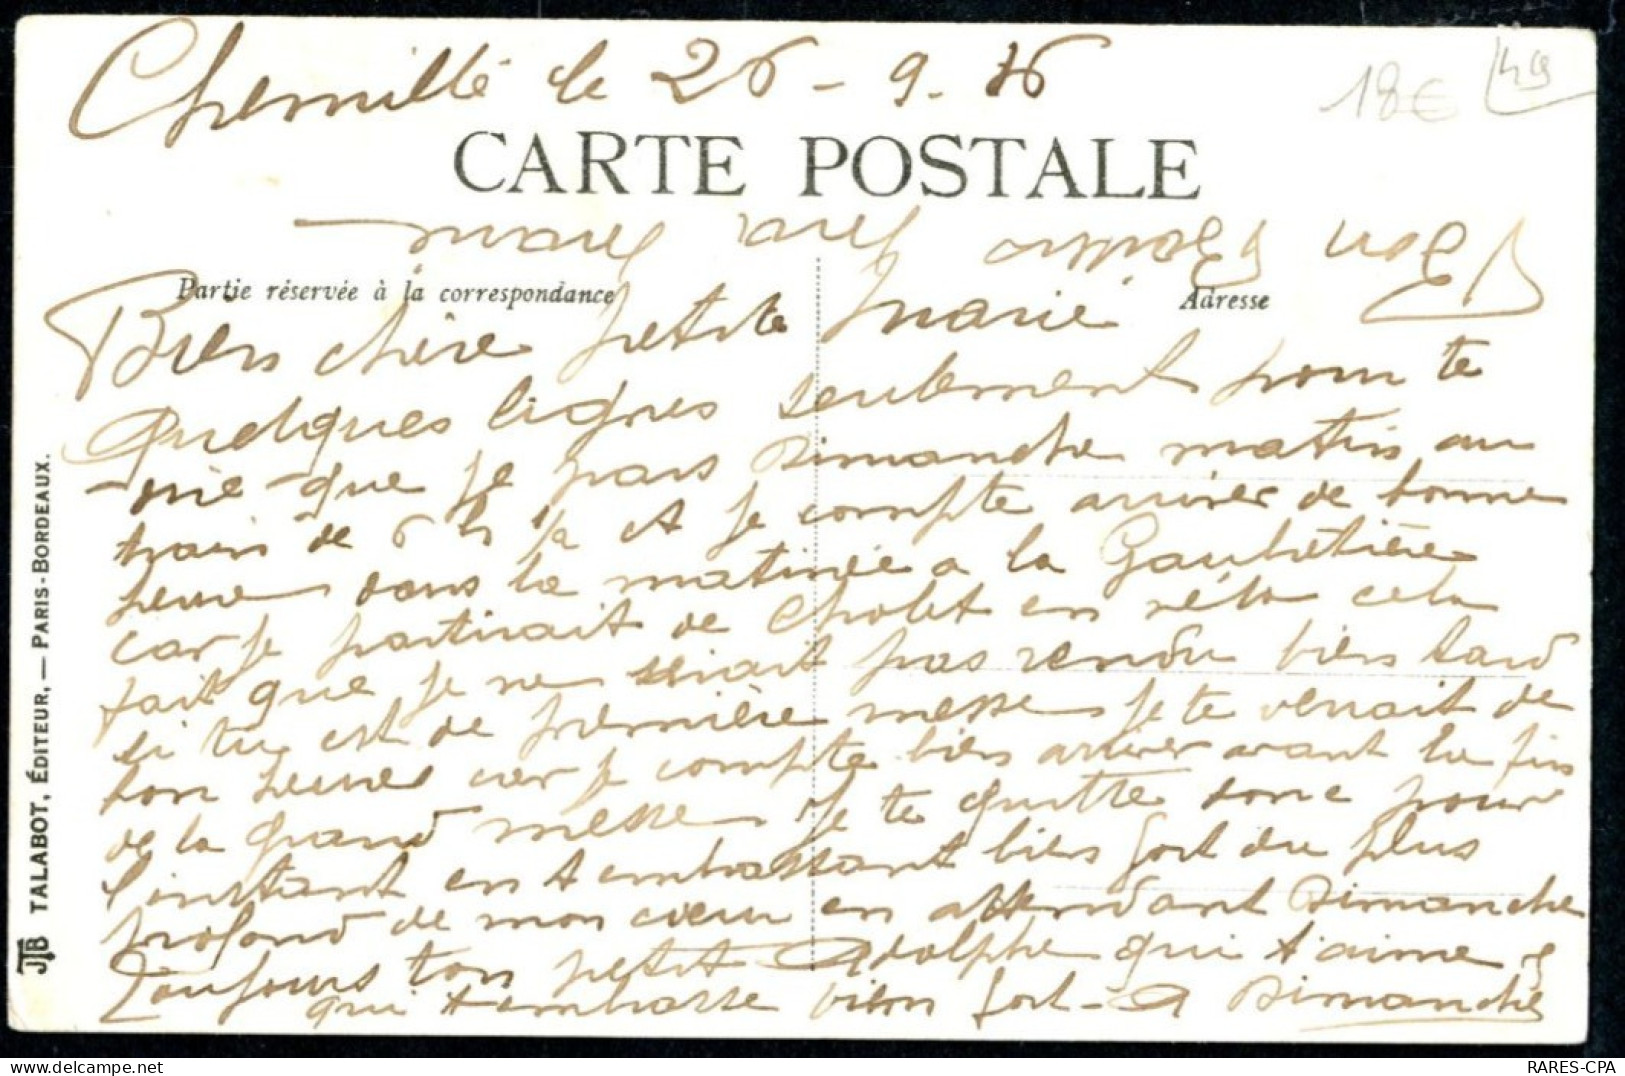 Chemillé le 26-9.16
18€
49
CARTE POSTALE
Partie réservée à la correspondance
Adresse
Bien chère petite Marie
Quelques lignes seulement pour te
dire que je pars Dimanche matin au
train de 6 h 1/2 et je compte arriver de bonne
heure dans la matinée a la Gaubretière
car je partirait de Cholet en vélo cela
fait que je ne serait pas rendu bien tard
si tu est de première messe je te verrait de
bon heure car je compte bien arriver avant la fin
de la grand messe je te quitte donc pour
l'instant en t embrassant bien fort du plus
profond de mon cœur en attendant Dimanche
Toujours ton petit Adolphe qui t'aime &
qui t embrasse bien fort - A Dimanche
TALABOT, ÉDITEUR, — PARIS-BORDEAUX.
JTB
RARES-CPA